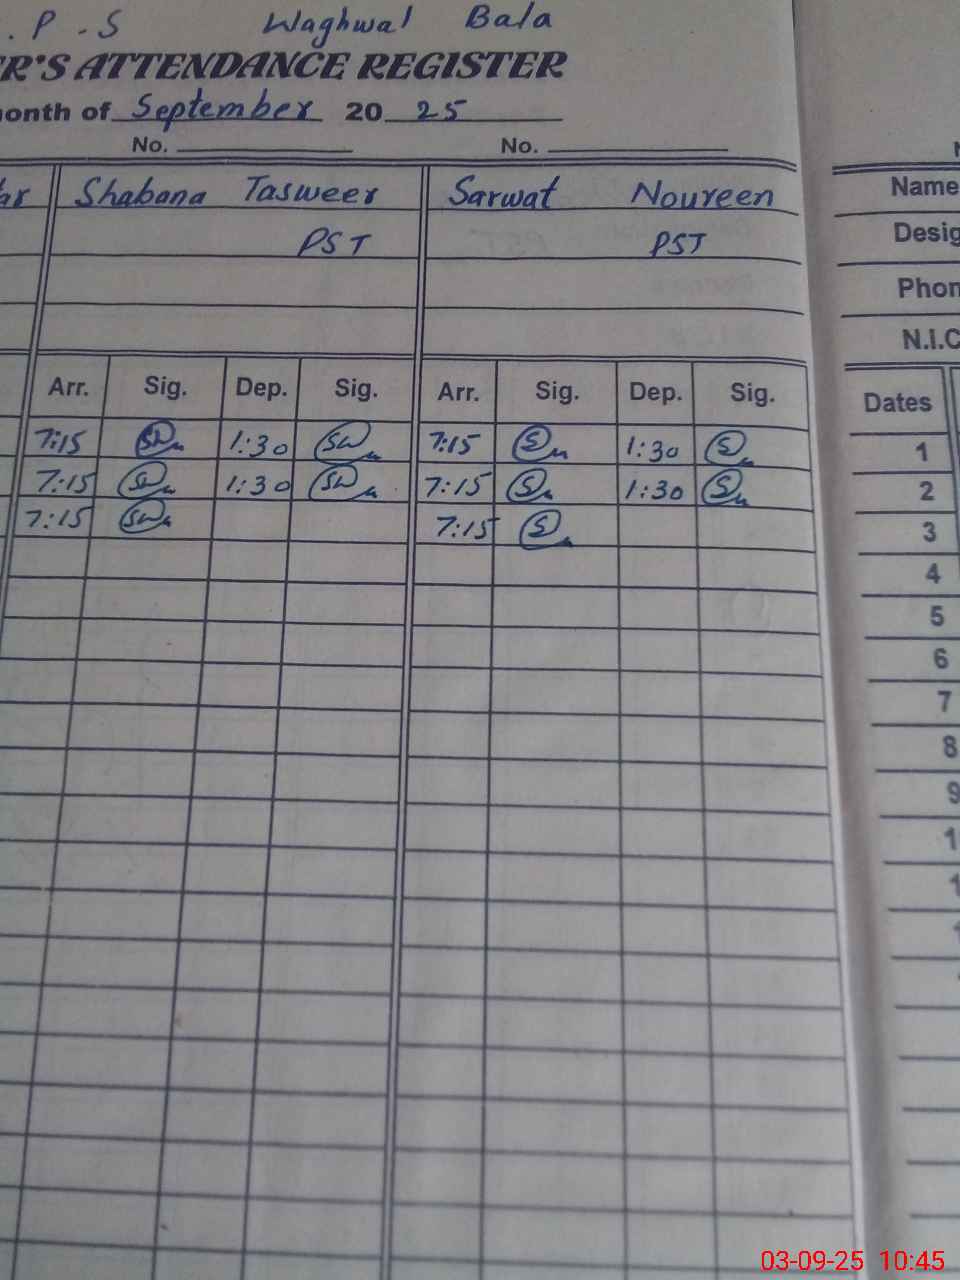 . P . S Waghwal Bala
R'S ATTENDANCE REGISTER
onth of September 20 25
No. No.
Shabana Tasweer Sarwat Noureen Name
PST PST Desig
Phon
N.I.C
Arr. Sig. Dep. Sig. Arr. Sig. Dep. Sig. Dates
7:15 SW 1:30 SW 7:15 S 1:30 S 1
7:15 SW 1:30 SW 7:15 S 1:30 S 2
7:15 SW 7:15 S 3
4
5
6
7
8
9
03-09-25 10:45